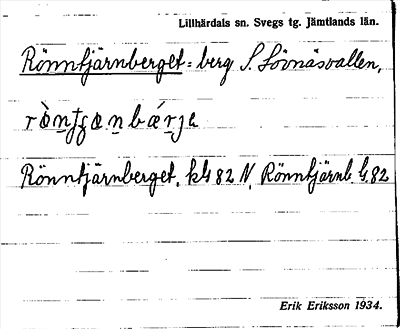 Lillhärdals sn. Svegs tg. Jämtlands län.
Rönntjärnberget = berg S. Lövnäsvallen,
Rönntjärnberget, kh 82 N, Rönntjärnb. G. 82
Erik Eriksson 1934.